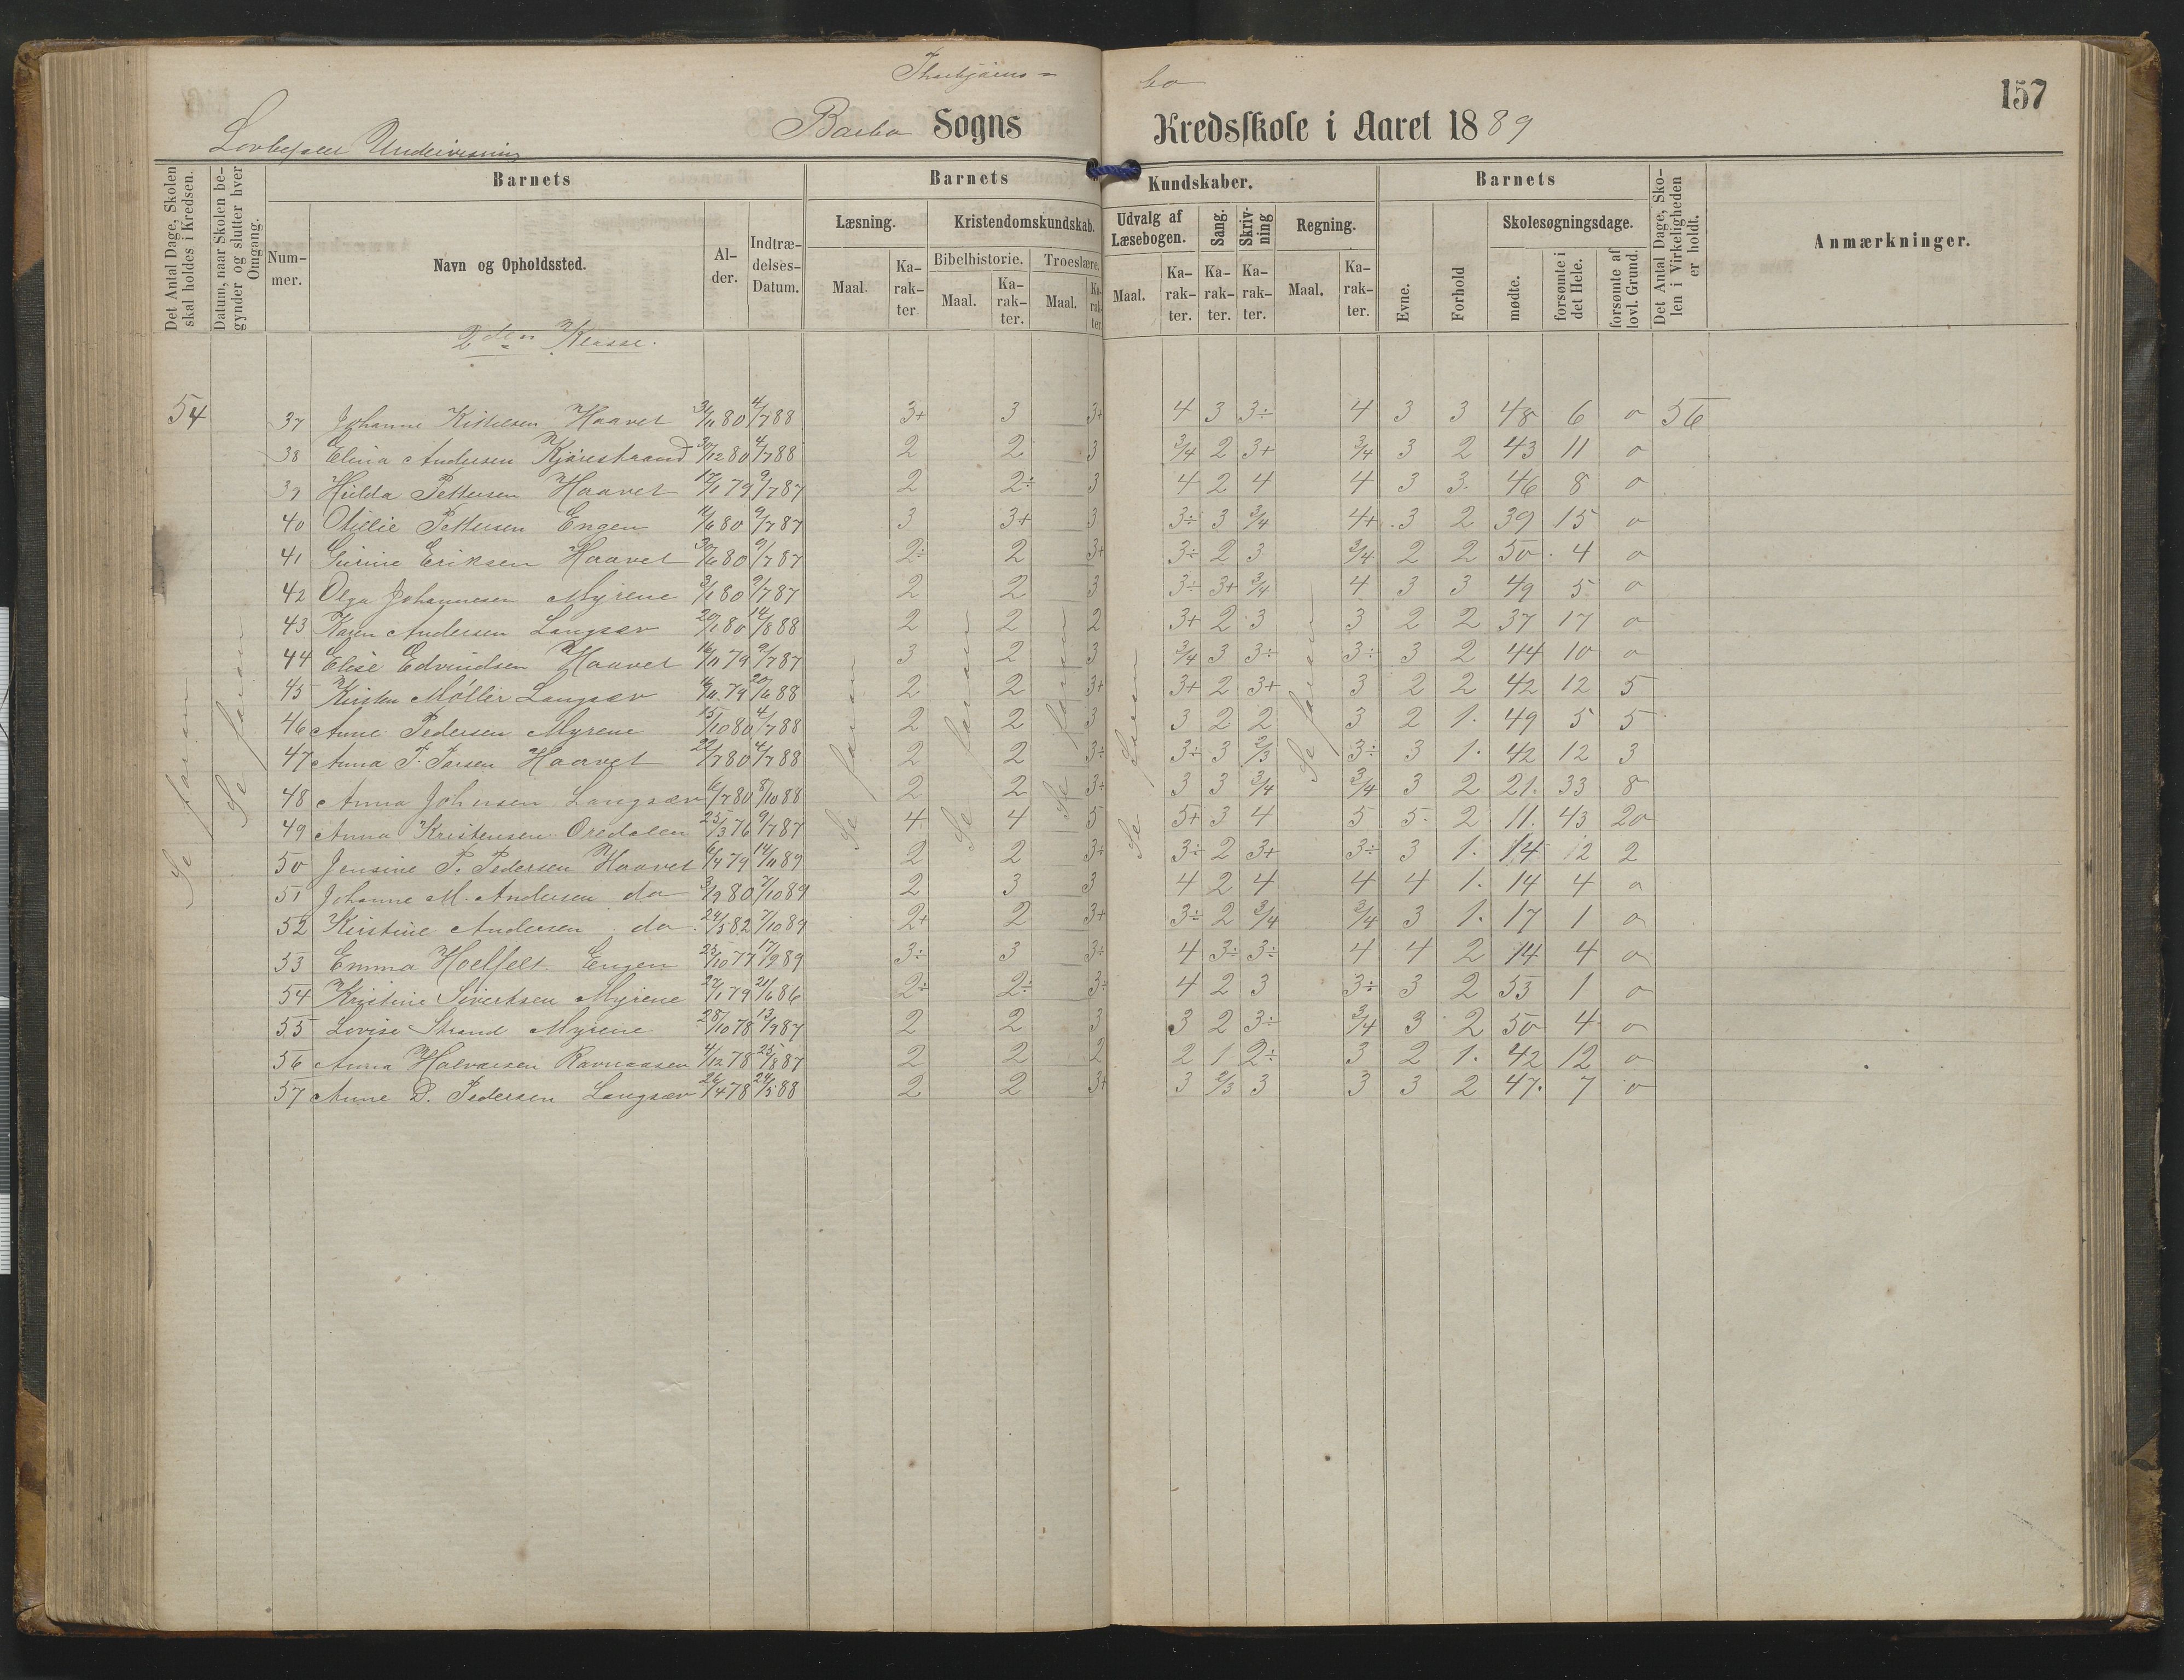 157
Lovbefalet Undervisning
Barbo Sogns Kredsskole i Aaret 1889
Det Antal Dage, Skolen skal holdes i Kredsen.
Datum, naar Skolen begynder og slutter hver Omgang.
Barnets
Barnets Kundskaber.
Barnets
Det Antal Dage, Skolen i Virkeligheden er holdt.
Anmærkninger.
Nummer.
Navn og Opholdssted.
Alder.
Indtrædelses-Datum.
Læsning.
Kristendomskundskab.
Udvalg af Læsebogen.
Sang.
Skrivning
Regning.
Evne.
Forhold
Skolesøgningsdage.
Bibelhistorie. Troeslære.
Maal. Karakter. Maal. Karakter. Maal. Karakter. Maal. Karakter. Karakter. Karakter. Maal. Karakter.
mødte. forsømte i det Hele. forsømte af lovl. Grund.
2den Klasse.
54 37 Johanne Kittelsen Haavet 4/7 88 3+ 3 3+ 4 3 3÷ 4 3 3 48 6 0 56
38 Elina Andersen Kjørestrand 30/12 80 4/7 88 2 2 3 3/4 2 3+ 3/4 3 2 43 11 0
39 Hilda Pettersen Haavet 12/1 79 9/7 87 2 2÷ 3 4 2 4 4 3 3 46 8 0
40 Otilie Pettersen Engen 11/6 80 9/7 87 3 3+ 3 3÷ 3 3/4 4+ 3 2 39 15 0
41 Gurine Eriksen Haavet 30/6 80 9/7 87 2÷ 2 3+ 3÷ 2 3 3/4 2 2 50 4 0
42 Olga Johannesen Myrene 3/1 80 9/7 87 2 2 3 3÷ 3+ 3/4 4 3 3 49 5 0
43 Karen Andersen Langsæv 20/1 80 14/8 88 2 2 2 3+ 2 3 3 2 2 37 17 0
44 Elise Edvindsen Haavet 16/11 79 9/7 87 3 2 3 3/4 3 3÷ 3÷ 3 2 44 10 0
45 Kirsten Møller Langsæv 79 20/6 88 2 2 3+ 3+ 2 3+ 3 2 2 42 12 5
46 Anne Pedersen Myrene 15/10 80 4/7 88 2 2 3 3 2 2 3 2 1. 49 5 5
47 Anna Haavet 22/7 80 4/7 88 2 2 3÷ 3÷ 3 2/3 3÷ 3 1. 42 12 3
48 Anna Johnsen Langsæv 6/7 80 8/10 88 2 2 3÷ 3 3 3/4 3/4 3 2 21. 33 8
49 Anna Kristensen Oredalen 23/3 76 9/7 87 4 4 5 5+ 3 4 5 5 2 11. 43 20
50 Jensine P. Pedersen Haavet 6/4 79 14/11 89 2 2 3÷ 3÷ 2 3+ 3÷ 3 1. 14 12 2
51 Johanne M. Andersen do 3/9 80 7/10 89 2 3 3 4 2 4 4 4 1. 14 4 0
52 Kirstine Andersen do. 24/5 82 7/10 89 2+ 2 3+ 3÷ 2 3/4 3/4 3 1. 17 1 0
53 Emma Hoelfelt Engen 25/10 77 17/9 89 3÷ 3 3÷ 4 3÷ 3÷ 4 4 2 14 4 0
54 Kristine Sivertsen Myrene 27/1 79 21/6 86 2÷ 2÷ 3÷ 4 2 3 3÷ 3 2 53 1 0
55 Lovise Strand Myrene 28/10 78 13/9 87 2 2 3 3 2 3÷ 3/4 3 2 50 4 0
56 Anna Halvorsen Ravnaasen 4/12 78 25/8 87 2 2 2 2 1 2÷ 3 2 1. 42 12 0
57 Anne D. Pedersen Langsæv 26/4 78 24/5 88 2 2 3+ 3 2/3 3 3 3 2 47. 7 0
Se foran
Se foran
Se foran
Se foran
Se foran
Se foran
Se foran